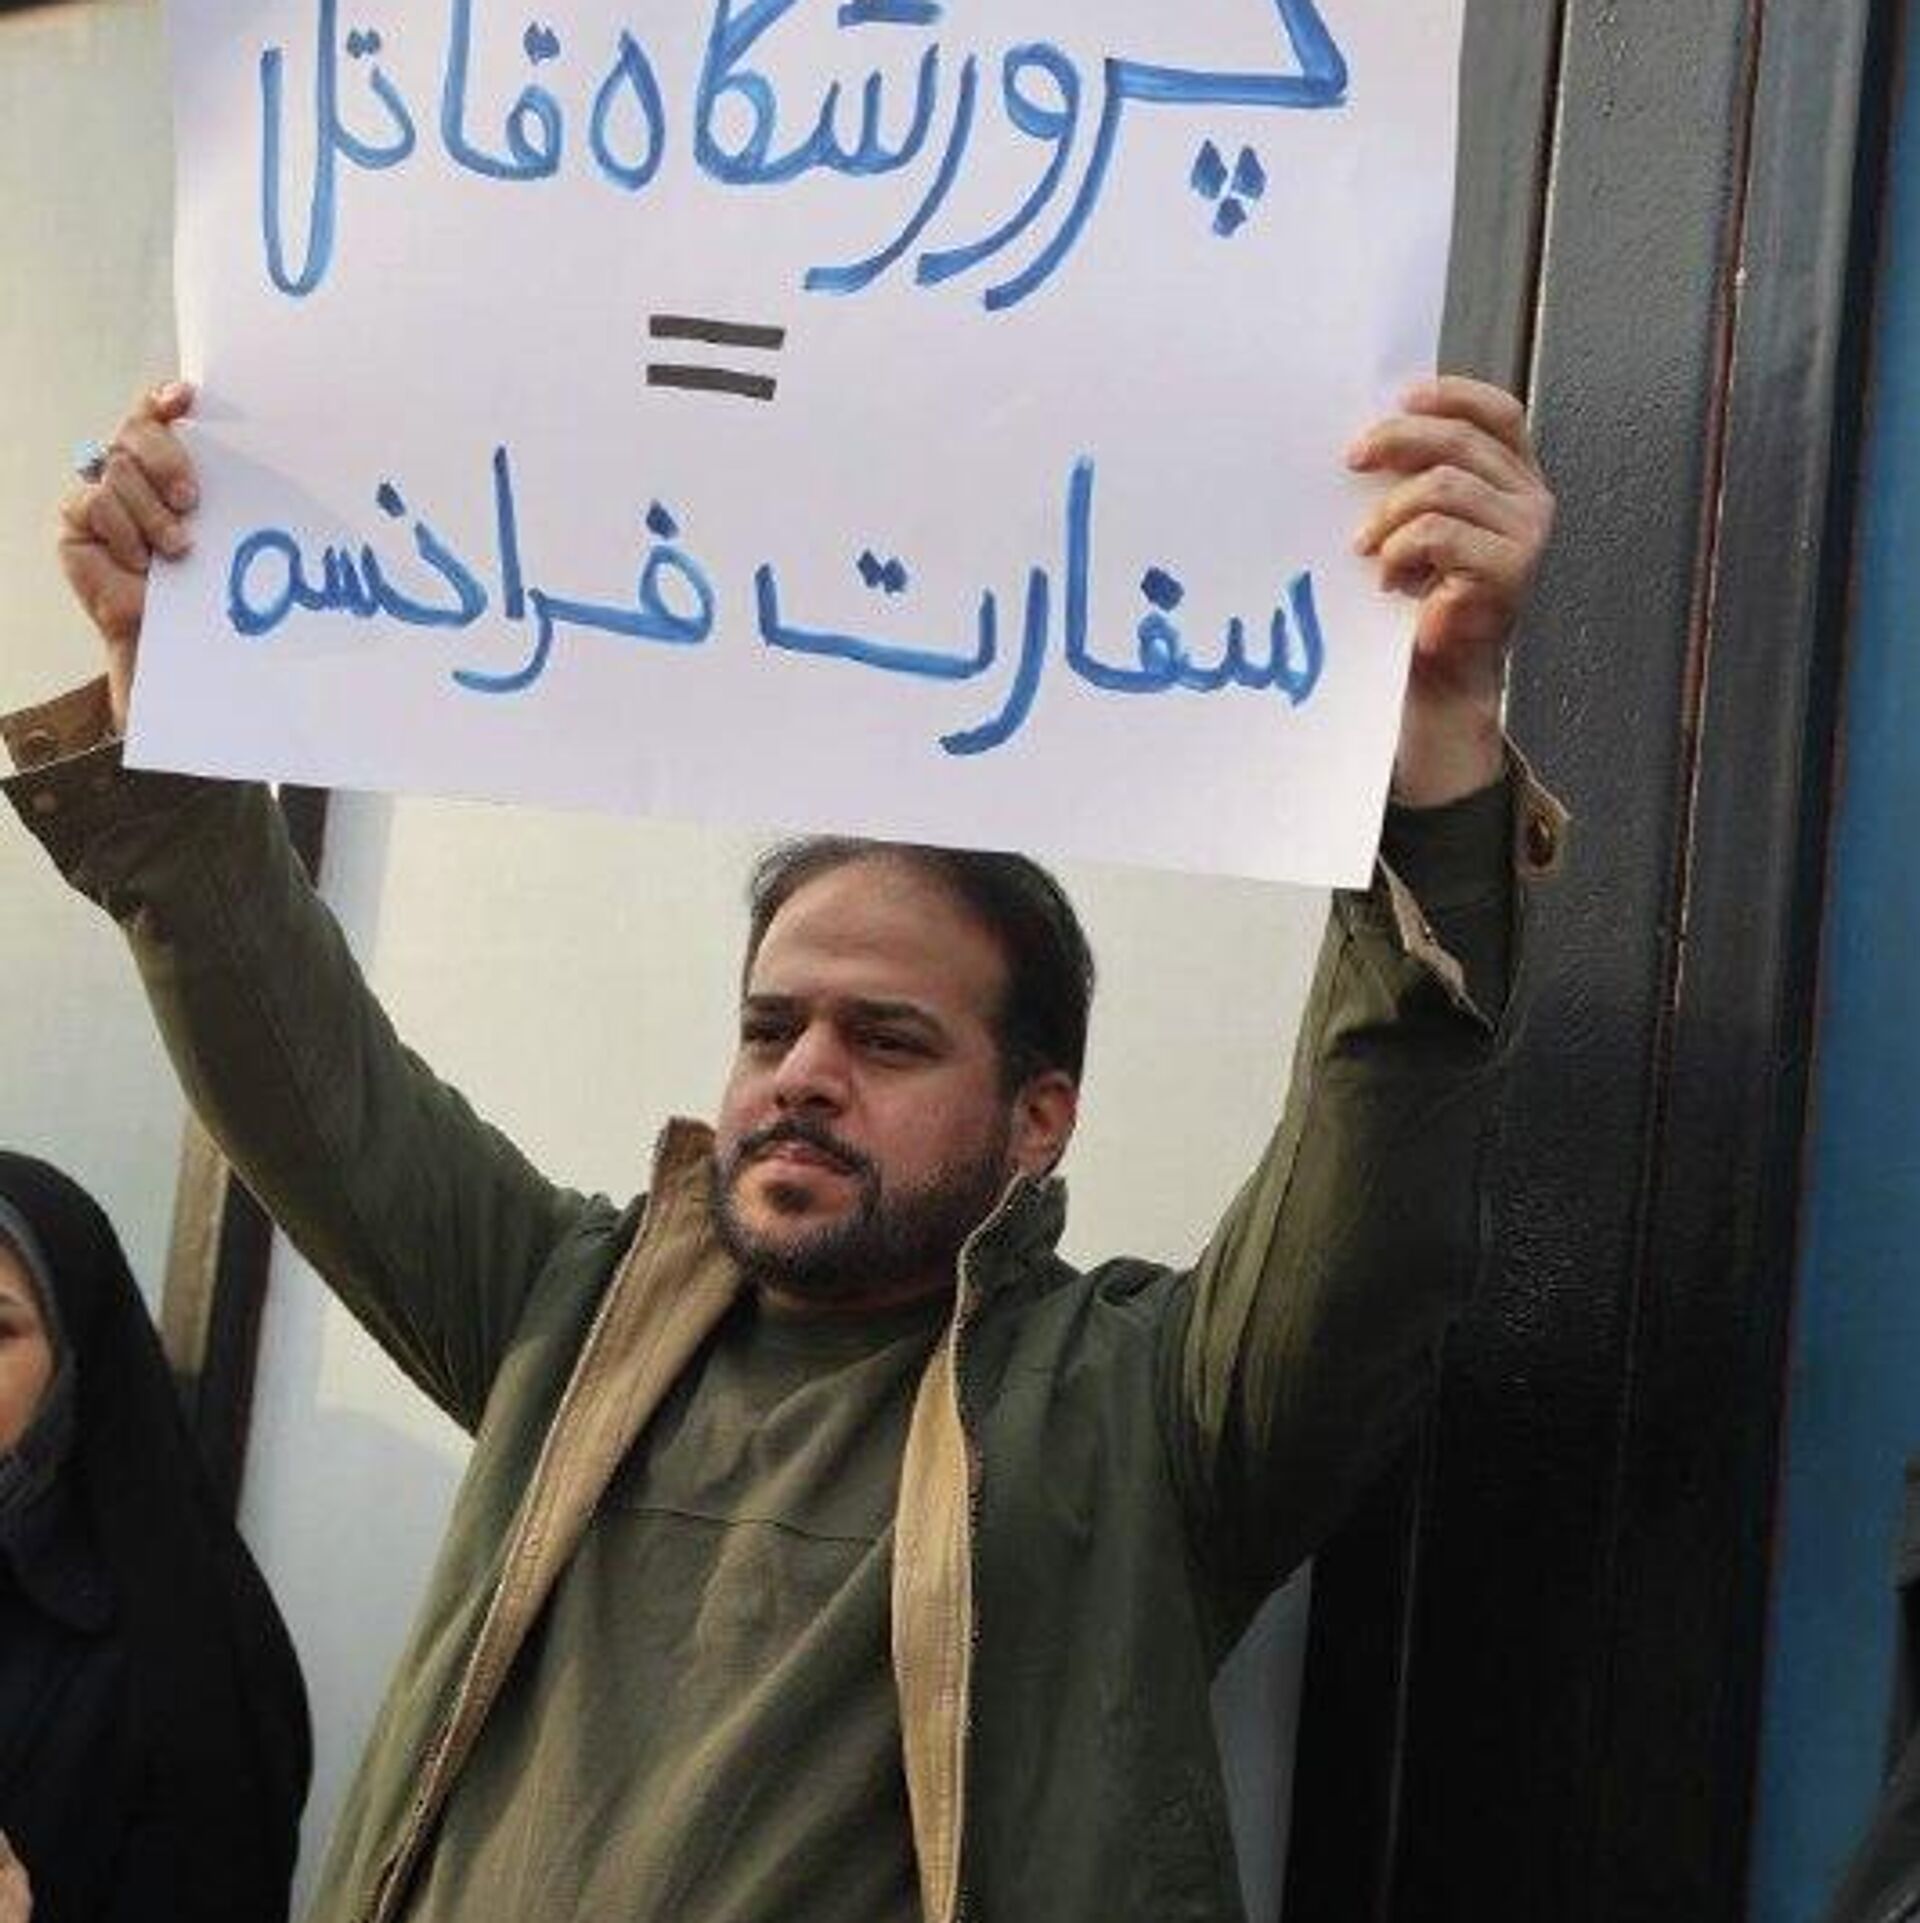 پرورشگاه قاتل
=
سفارت فرانسه